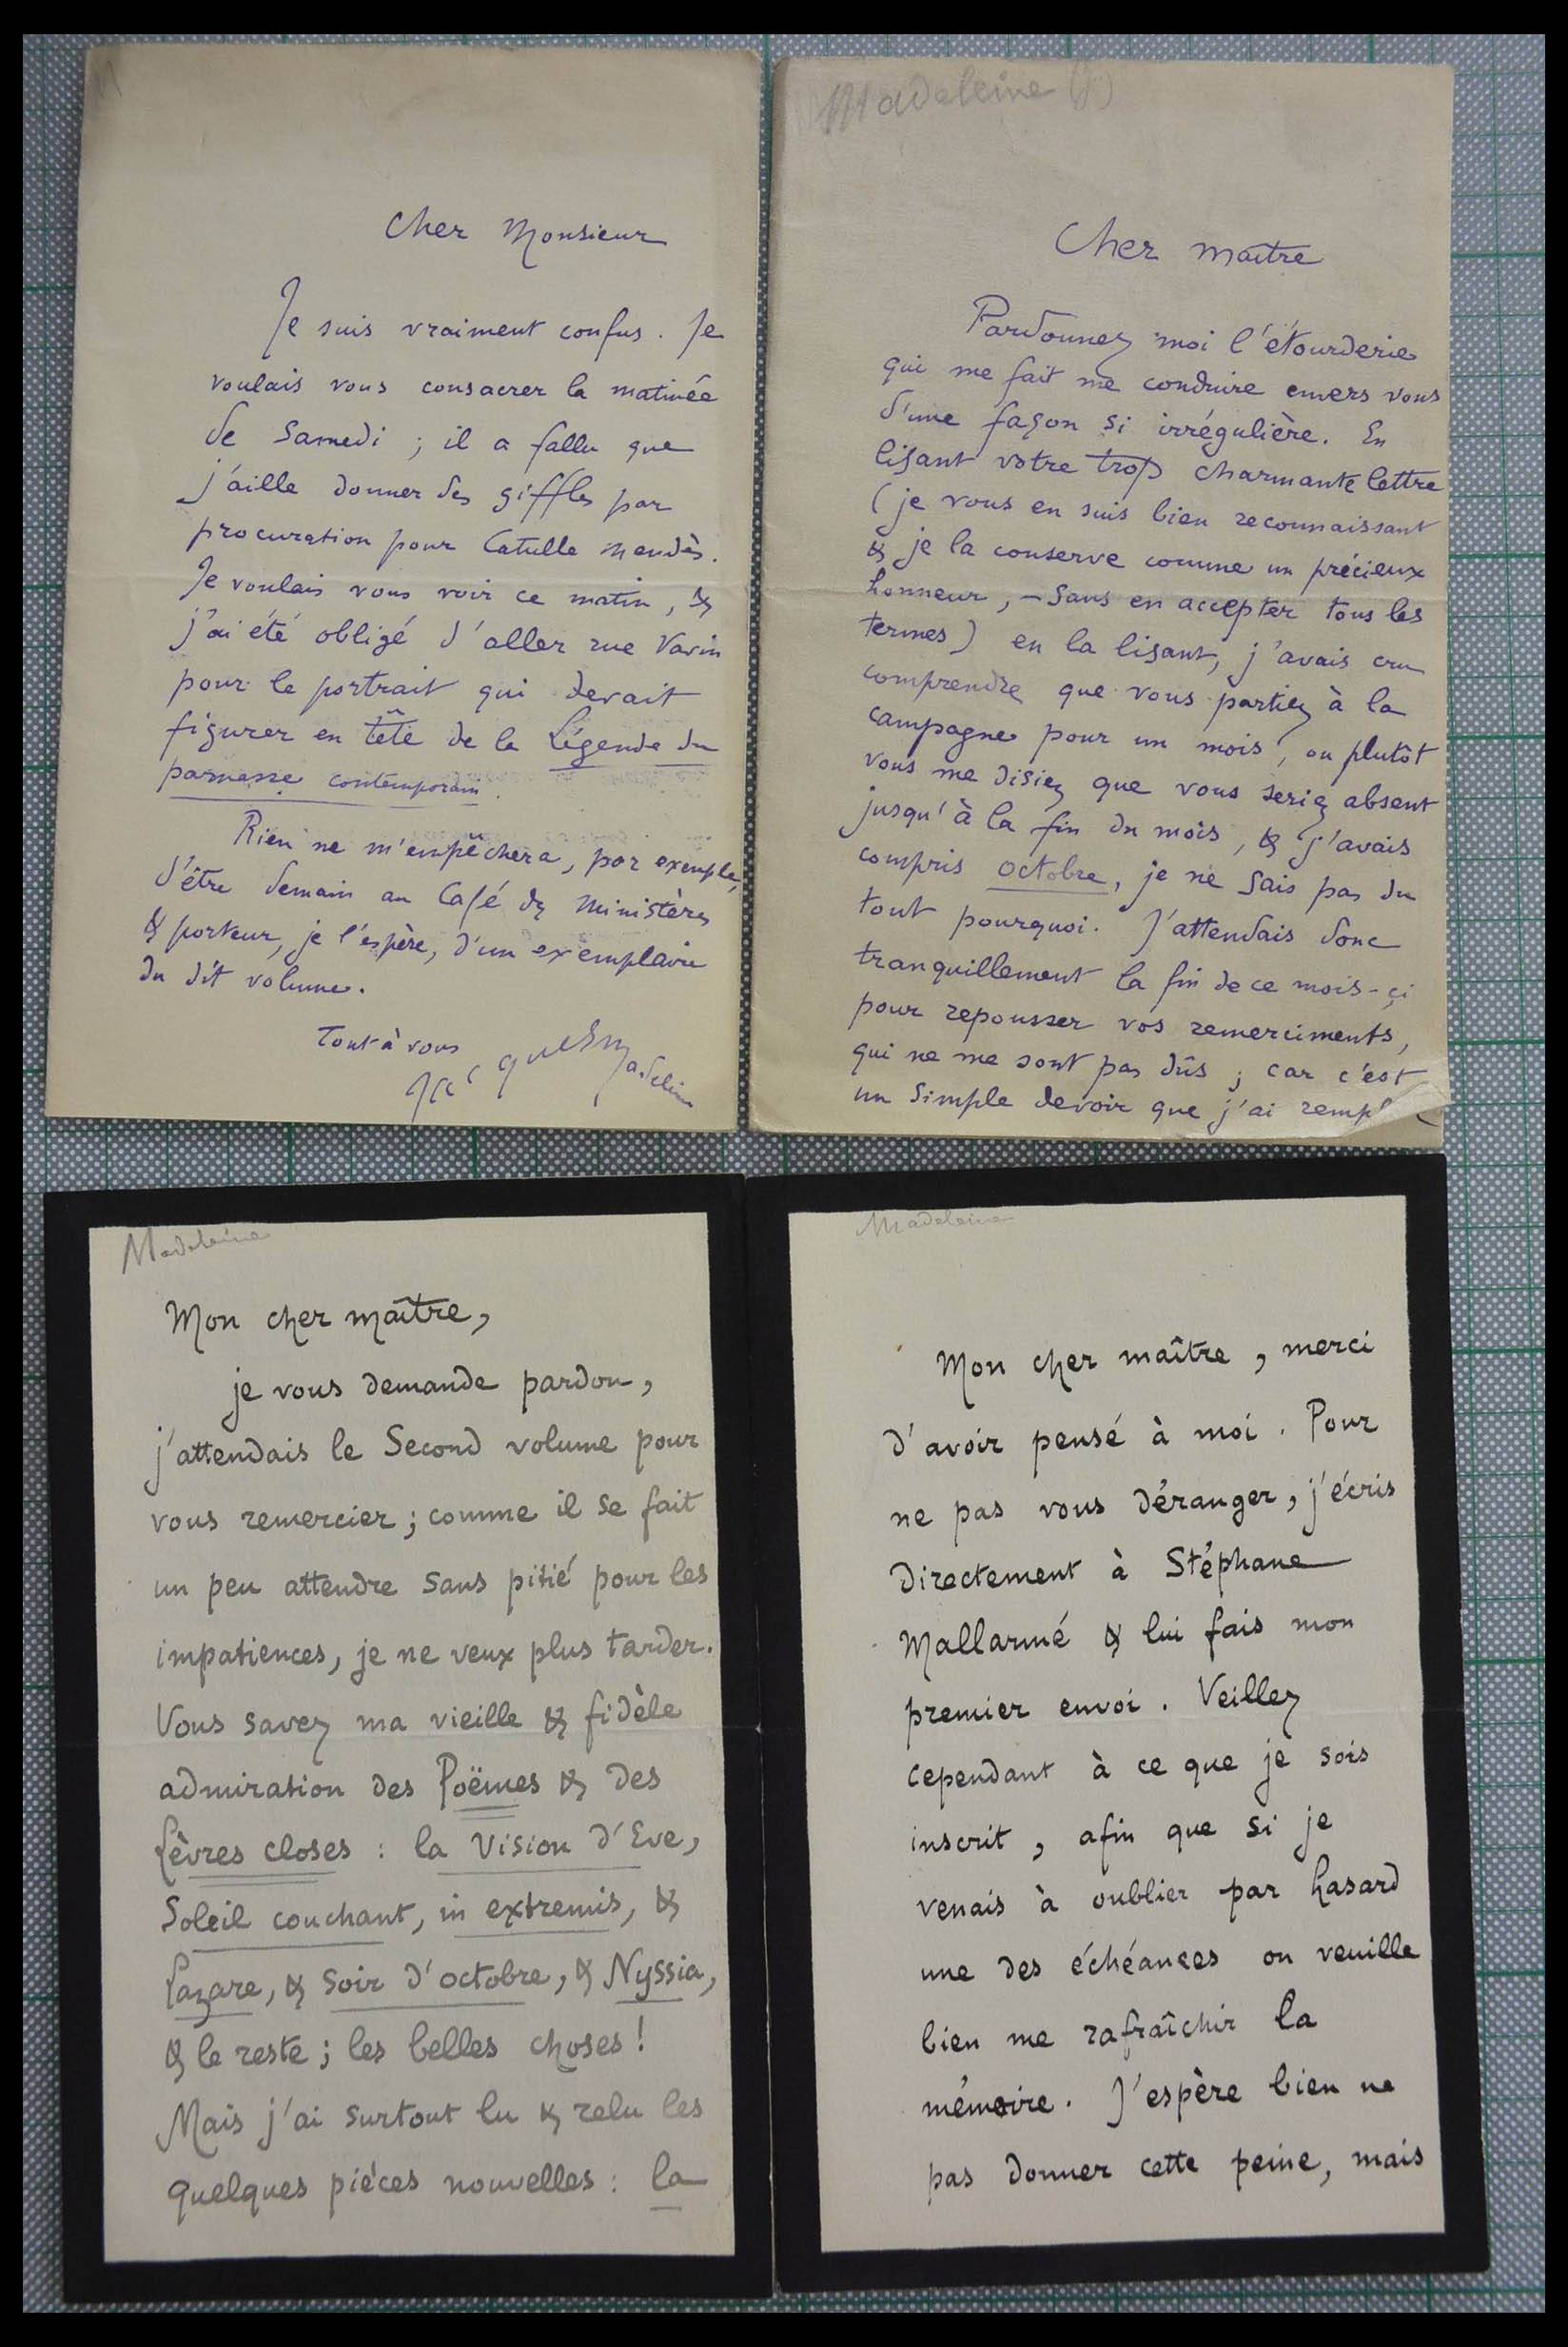 Cher Monsieur
Je suis vraiment confus. Je
voulais vous consacrer la matinée
de Samedi ; il a fallu que
j'aille donner des giffles par
procuration pour Catulle Mendès.
Je voulais vous voir ce matin, &
j'ai été obligé d'aller rue Vavin
pour le portrait qui devait
figurer en tête de la Légende du
parnasse contemporain.
Rien ne m'empêchera, par exemple,
d'être demain au Café des Ministères
& porteur, je l'espère, d'un exemplaire
du dit volume.
Tout à vous
Jacques Madeleine
Madeleine (J)
Cher maître
Pardonnez moi l'étourderie
qui me fait me conduire envers vous
d'une façon si irrégulière. En
lisant votre trop charmante lettre
(je vous en suis bien reconnaissant
& je la conserve comme un précieux
honneur, – sans en accepter tous les
termes) en la lisant, j'avais cru
comprendre que vous partiez à la
campagne pour un mois, ou plutôt
vous me disiez que vous seriez absent
jusqu'à la fin du mois, & j'avais
compris octobre, je ne sais pas du
tout pourquoi. J'attendais donc
tranquillement la fin de ce mois-çi
pour repousser vos remerciments,
qui ne me sont pas dûs ; car c'est
un simple devoir que j'ai rempli
Madeleine
Mon cher maître,
je vous demande pardon,
j'attendais le Second volume pour
vous remercier ; comme il se fait
un peu attendre sans pitié pour les
impatiences, je ne veux plus tarder.
Vous savez ma vieille & fidèle
admiration des Poëmes & des
Lèvres closes : la Vision d'Eve,
Soleil couchant, in extremis, &
Lazare, & Soir d'octobre, & Nyssia,
& le reste ; les belles choses !
Mais j'ai surtout lu & relu les
quelques pièces nouvelles : la
Madeleine
Mon cher maître, merci
d'avoir pensé à moi. Pour
ne pas vous déranger, j'écris
directement à Stéphane
Mallarmé & lui fais mon
premier envoi. Veillez
cependant à ce que je sois
inscrit, afin que si je
venais à oublier par hasard
une des échéances on veuille
bien me rafraîchir la
mémoire. J'espère bien ne
pas donner cette peine, mais